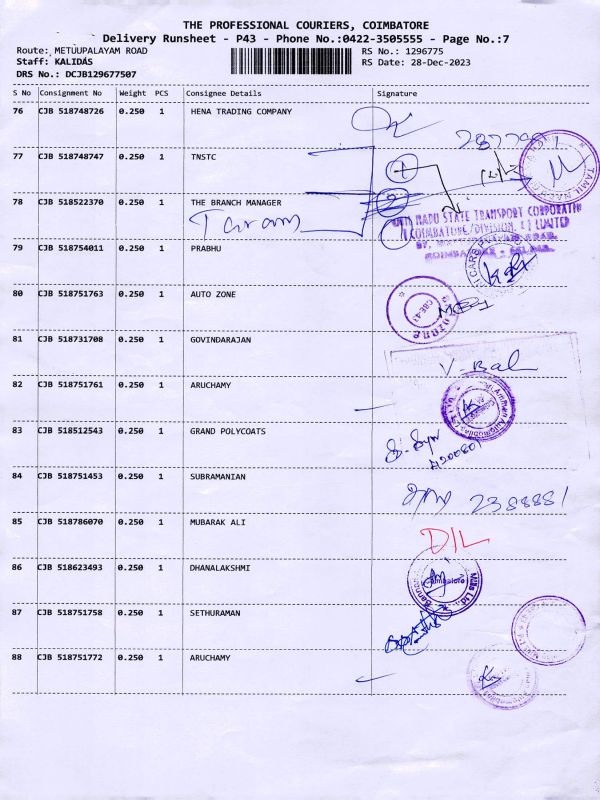 THE PROFESSIONAL COURIERS, COIMBATORE
Delivery Runsheet - P43 - Phone No.:0422-3505555 - Page No.:7
Route: METUUPALAYAM ROAD RS No.: 1296775
Staff: KALIDAS RS Date: 28-Dec-2023
DRS No.: DCJB129677507
S No Consignment No Weight PCS Consignee Details Signature
76 CJB 518748726 0.250 1 HENA TRADING COMPANY
77 CJB 518748747 0.250 1 TNSTC
78 CJB 518522370 0.250 1 THE BRANCH MANAGER
NADU STATE TRANSPORT CORPORATION
(COIMBATORE/DIVISION. LIMITED
79 CJB 518754011 0.250 1 PRABHU
80 CJB 518751763 0.250 1 AUTO ZONE
81 CJB 518731708 0.250 1 GOVINDARAJAN
V-Bal
82 CJB 518751761 0.250 1 ARUCHAMY
83 CJB 518512543 0.250 1 GRAND POLYCOATS
84 CJB 518751453 0.250 1 SUBRAMANIAN
85 CJB 518786070 0.250 1 MUBARAK ALI
DIL
86 CJB 518623493 0.250 1 DHANALAKSHMI
87 CJB 518751758 0.250 1 SETHURAMAN
88 CJB 518751772 0.250 1 ARUCHAMY